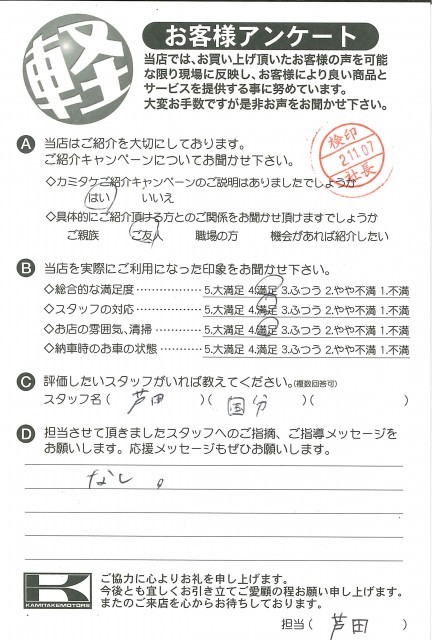 軽
お客様アンケート
当店では、お買い上げ頂いたお客様の声を可能
な限り現場に反映し、お客様により良い商品と
サービスを提供する事に努めています。
大変お手数ですが是非お声をお聞かせ下さい。
検印
2.11.07
社長
A 当店はご紹介を大切にしております。
ご紹介キャンペーンについてお聞かせ下さい。
◇カミタケご紹介キャンペーンのご説明はありましたでしょうか
はい いいえ
◇具体的にご紹介頂ける方とのご関係をお聞かせ頂けますでしょうか
ご親族 ご友人 職場の方 機会があれば紹介したい
B 当店を実際にご利用になった印象をお聞かせ下さい。
◇総合的な満足度 ‥‥‥‥‥‥ 5.大満足 4.満足 3.ふつう 2.やや不満 1.不満
◇スタッフの対応 ‥‥‥‥‥‥ 5.大満足 4.満足 3.ふつう 2.やや不満 1.不満
◇お店の雰囲気、清掃 ‥‥‥‥ 5.大満足 4.満足 3.ふつう 2.やや不満 1.不満
◇納車時のお車の状態 ‥‥‥‥ 5.大満足 4.満足 3.ふつう 2.やや不満 1.不満
C 評価したいスタッフがいれば教えてください。(複数回答可)
スタッフ名( 芦田 )( 国分 )( )
D 担当させて頂きましたスタッフへのご指摘、ご指導メッセージを
お願いします。応援メッセージもぜひお願いします。
なし。
K
KAMITAKEMOTORS
ご協力に心よりお礼を申し上げます。
今後とも宜しくお引き立てご愛顧の程お願い申し上げます。
またのご来店を心からお待ちしております。
担当( 芦田 )